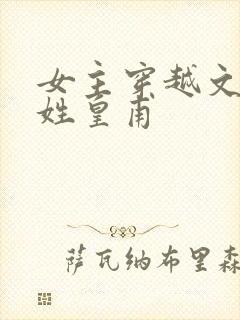 女主穿越文
姓皇甫
萨瓦纳布里森